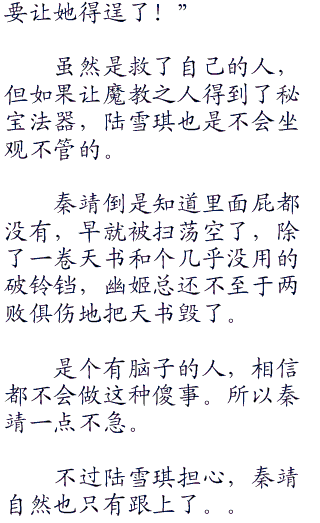 要让她得逞了！”
虽然是救了自己的人，
但如果让魔教之人得到了秘
宝法器，陆雪琪也是不会坐
观不管的。
秦靖倒是知道里面屁都
没有，早就被扫荡空了，除
了一卷天书和个几乎没用的
破铃铛，幽姬总还不至于两
败俱伤地把天书毁了。
是个有脑子的人，相信
都不会做这种傻事。所以秦
靖一点不急。
不过陆雪琪担心，秦靖
自然也只有跟上了。。